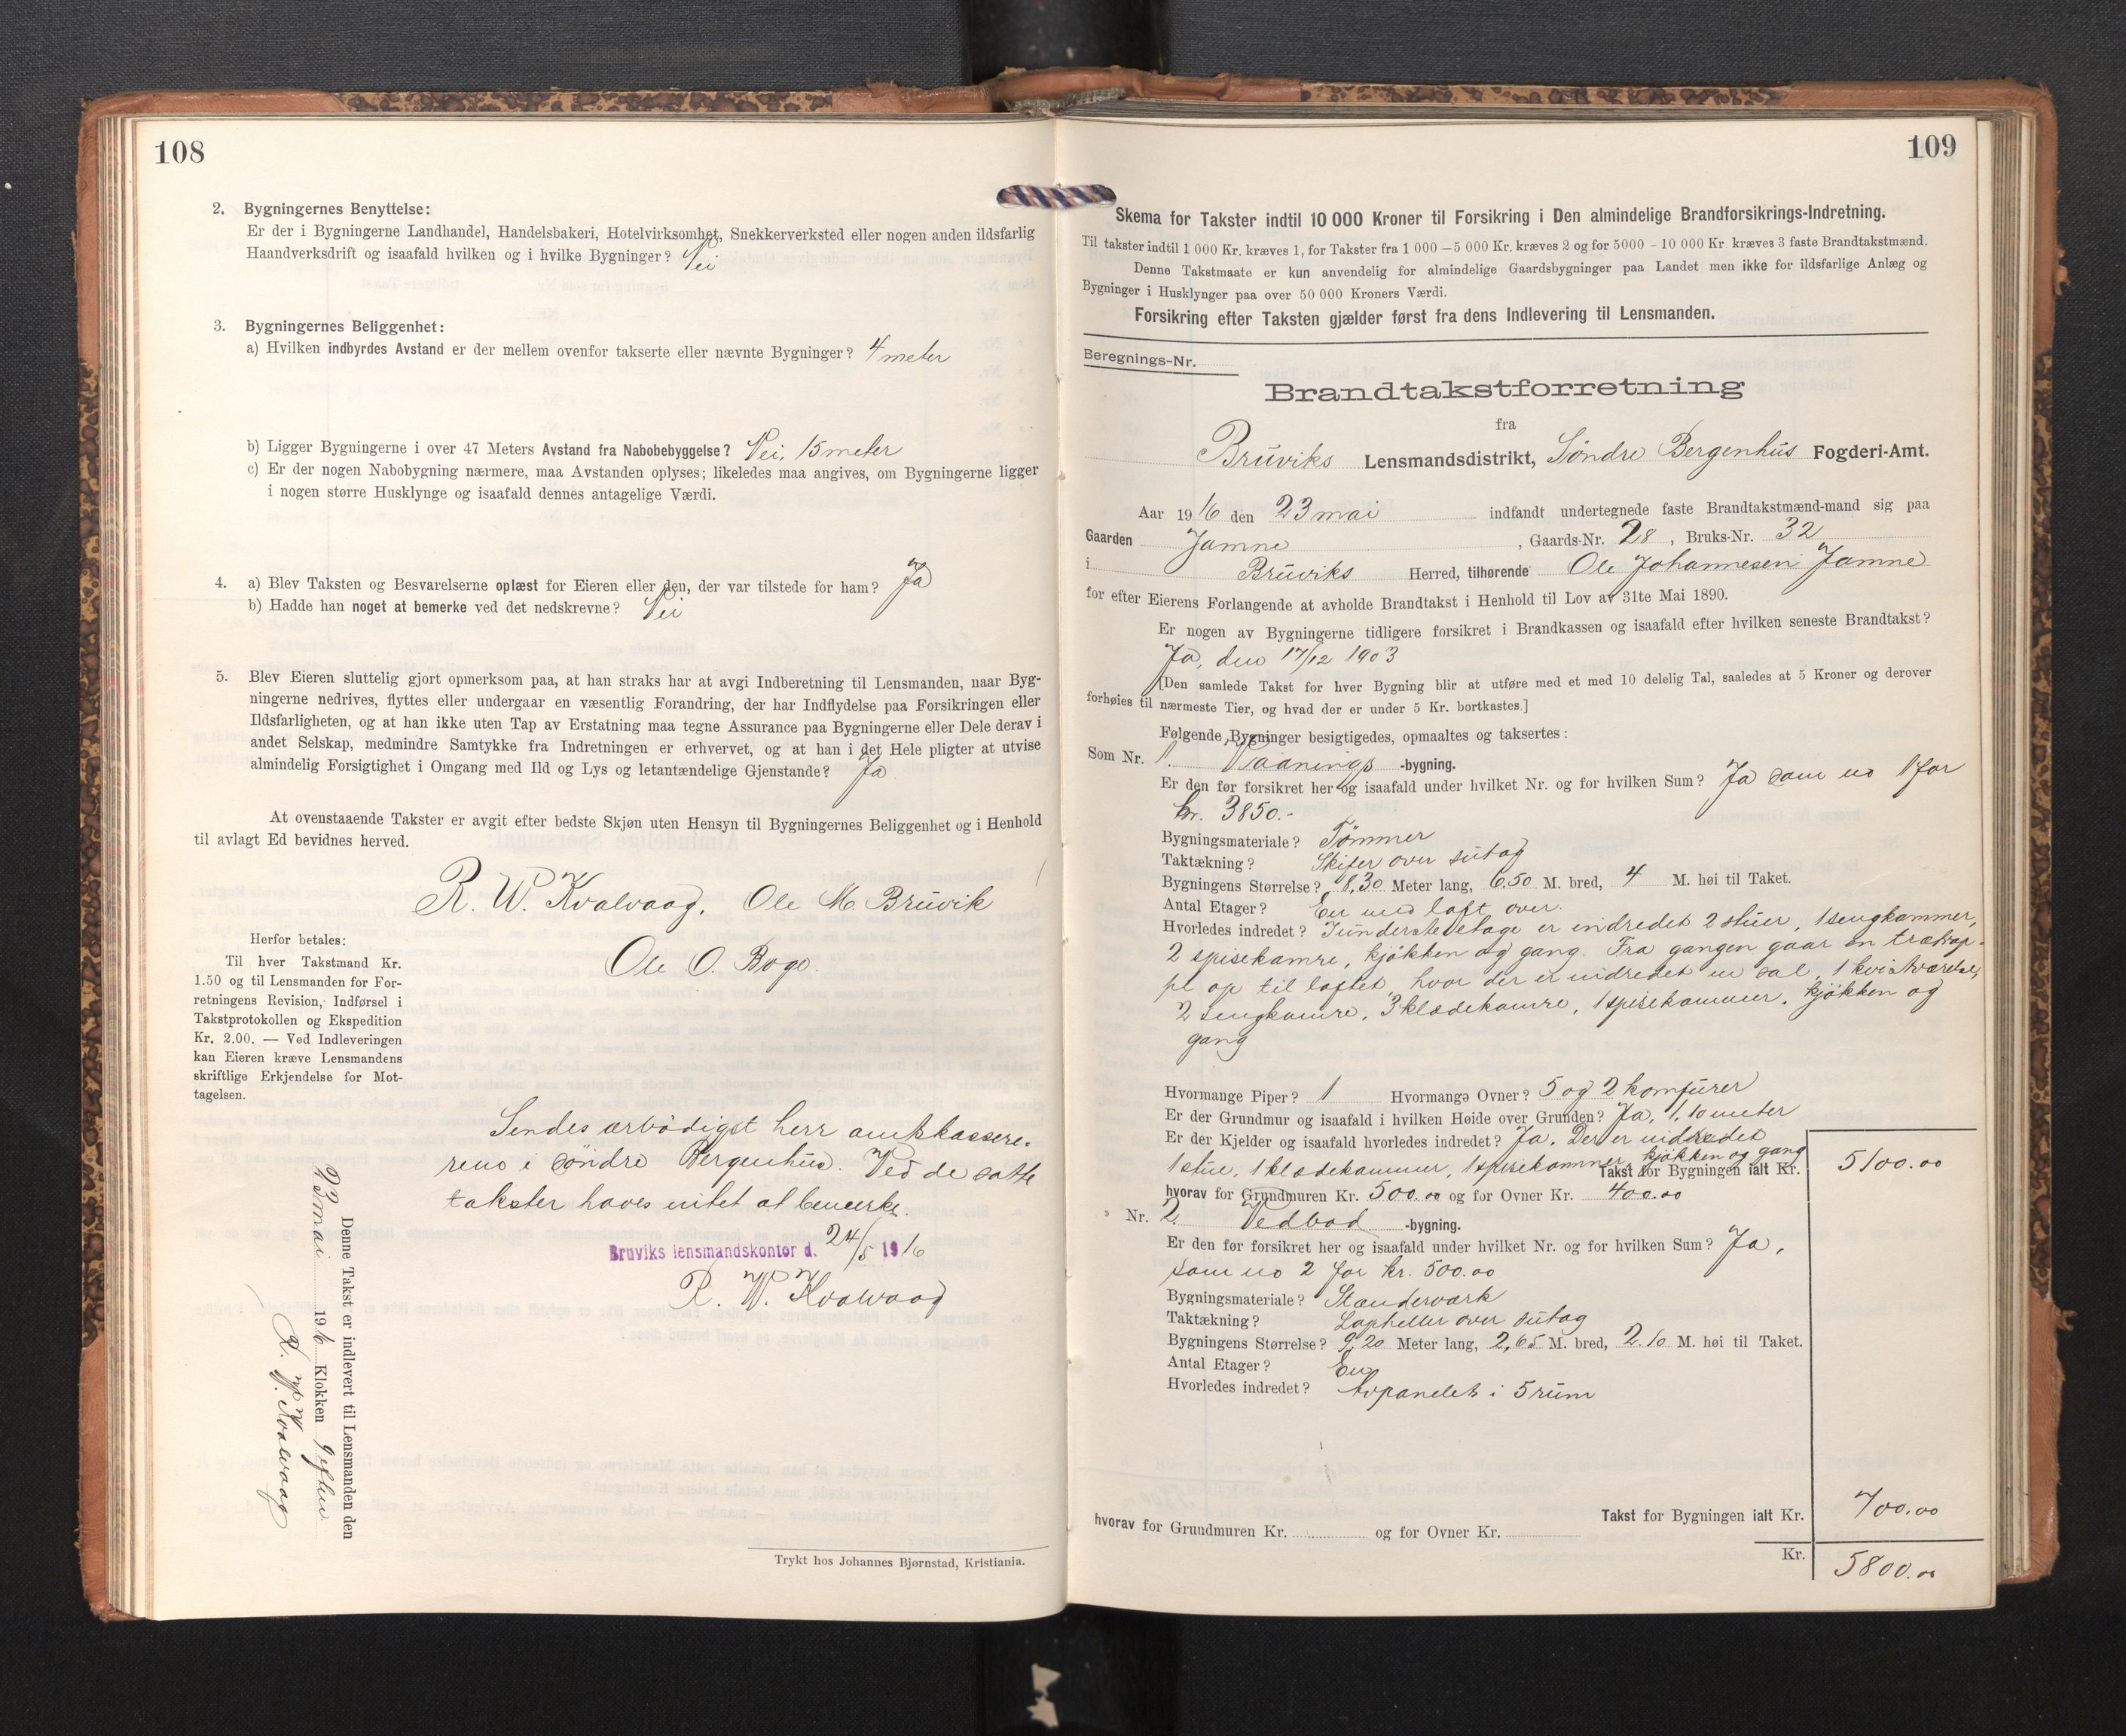 108
2. Bygningernes Benyttelse:
Er der i Bygningerne Landhandel, Handelsbakeri, Hotelvirksomhet, Snekkerverksted eller nogen anden ildsfarlig
Haandverksdrift og isaafald hvilken og i hvilke Bygninger? Nei
3. Bygningernes Beliggenhet:
a) Hvilken indbyrdes Avstand er der mellem ovenfor takserte eller nævnte Bygninger? 4 meter
b) Ligger Bygningerne i over 47 Meters Avstand fra Nabobebyggelse? Nei, 15 meter
c) Er der nogen Nabobygning nærmere, maa Avstanden oplyses; likeledes maa angives, om Bygningerne ligger
i nogen større Husklynge og isaafald dennes antagelige Værdi.
4. a) Blev Taksten og Besvarelserne oplæst for Eieren eller den, der var tilstede for ham? Ja
b) Hadde han noget at bemerke ved det nedskrevne? Nei
5. Blev Eieren sluttelig gjort opmerksom paa, at han straks har at avgi Indberetning til Lensmanden, naar Byg-
ningerne nedrives, flyttes eller undergaar en væsentlig Forandring, der har Indflydelse paa Forsikringen eller
Ildsfarligheten, og at han ikke uten Tap av Erstatning maa tegne Assurance paa Bygningerne eller Dele derav i
andet Selskap, medmindre Samtykke fra Indretningen er erhvervet, og at han i det Hele pligter at utvise
almindelig Forsigtighet i Omgang med Ild og Lys og letantændelige Gjenstande? Ja
At ovenstaaende Takster er avgit efter bedste Skjøn uten Hensyn til Bygningernes Beliggenhet og i Henhold
til avlagt Ed bevidnes herved.
R. W. Kvalvaag. Ole M. Bruvik
Ole O. Boge.
Herfor betales:
Til hver Takstmand Kr.
1.50 og til Lensmanden for For-
retningens Revision, Indførsel i
Takstprotokollen og Ekspedition
Kr. 2.00. — Ved Indleveringen
kan Eieren kræve Lensmandens
skriftlige Erkjendelse for Mot-
tagelsen.
Sendes ærbødigst herr amtskassere-
ren i søndre Bergenhus. Ved de satte
takster haves intet at bemerke.
Bruviks lensmandskontor d. 24/5 1916
R. W. Kvalvaag
Denne Takst er indlevert til Lensmanden den
23 mai 1916 Klokken 9 eftm
R. W. Kvalvaag
Trykt hos Johannes Bjørnstad, Kristiania.
109
Skema for Takster indtil 10 000 Kroner til Forsikring i Den almindelige Brandforsikrings-Indretning.
Til takster indtil 1 000 Kr. kræves 1, for Takster fra 1 000 — 5 000 Kr. kræves 2 og for 5000 - 10 000 Kr. kræves 3 faste Brandtakstmænd.
Denne Takstmaate er kun anvendelig for almindelige Gaardsbygninger paa Landet men ikke for ildsfarlige Anlæg og
Bygninger i Husklynger paa over 50 000 Kroners Værdi.
Forsikring efter Taksten gjælder først fra dens Indlevering til Lensmanden.
Beregnings-Nr.
Brandtakstforretning
fra
Bruviks Lensmandsdistrikt, Søndre Bergenhus Fogderi-Amt.
Aar 1916 den 23 mai indfandt undertegnede faste Brandtakstmænd-mand sig paa
Gaarden Jamne, Gaards-Nr. 28, Bruks-Nr. 32
i Bruviks Herred, tilhørende Ole Johannesen Jamne
for efter Eierens Forlangende at avholde Brandtakst i Henhold til Lov av 31te Mai 1890.
Er nogen av Bygningerne tidligere forsikret i Brandkassen og isaafald efter hvilken seneste Brandtakst?
Ja, den 17/12 1903
[Den samlede Takst for hver Bygning blir at utføre med et med 10 delelig Tal, saaledes at 5 Kroner og derover
forhøies til nærmeste Tier, og hvad der er under 5 Kr. bortkastes.]
Følgende Bygninger besigtigedes, opmaaltes og taksertes:
Som Nr. 1. Vaanings -bygning.
Er den før forsikret her og isaafald under hvilket Nr. og for hvilken Sum? Ja som no 1 for
kr. 3850.-
Bygningsmateriale? Tømmer
Taktækning? Skifer over sutag
Bygningens Størrelse? 8,30 Meter lang, 6.50 M. bred, 4 M. høi til Taket.
Antal Etager? En med loft over.
Hvorledes indredet? I underste etage er indredet 2 stuer, 1 sengkammer,
2 spisekamre, kjøkken og gang. Fra gangen gaar en trætrap-
pe op til loftet, hvor der er indredet en sal, 1 kvistværelse,
2 sengkamre, 3 klædekamre, 1 spisekammer, kjøkken og
gang
Hvormange Piper? 1 Hvormange Ovner? 5 og 2 komfurer
Er der Grundmur og isaafald i hvilken Høide over Grunden? Ja, 1,10 meter
Er der Kjelder og isaafald hvorledes indredet? Ja. Der er indredet
1 stue, 1 klædekammer, 1 spisekammer, kjøkken og gang
Takst for Bygningen ialt Kr. 5100.00
hvorav for Grundmuren Kr. 500.00 og for Ovner Kr. 400.00
Nr. 2. Vedbod -bygning.
Er den før forsikret her og isaafald under hvilket Nr. og for hvilken Sum? Ja,
som no 2 for kr. 500.00
Bygningsmateriale? Stenderværk
Taktækning? Lapheller over sutag
Bygningens Størrelse? 9,20 Meter lang, 2,65 M. bred, 2.10 M. høi til Taket.
Antal Etager? En
Hvorledes indredet? Avpanelet i 5 rum
Takst for Bygningen ialt Kr. 700.00
hvorav for Grundmuren Kr. og for Ovner Kr.
Kr. 5800.00